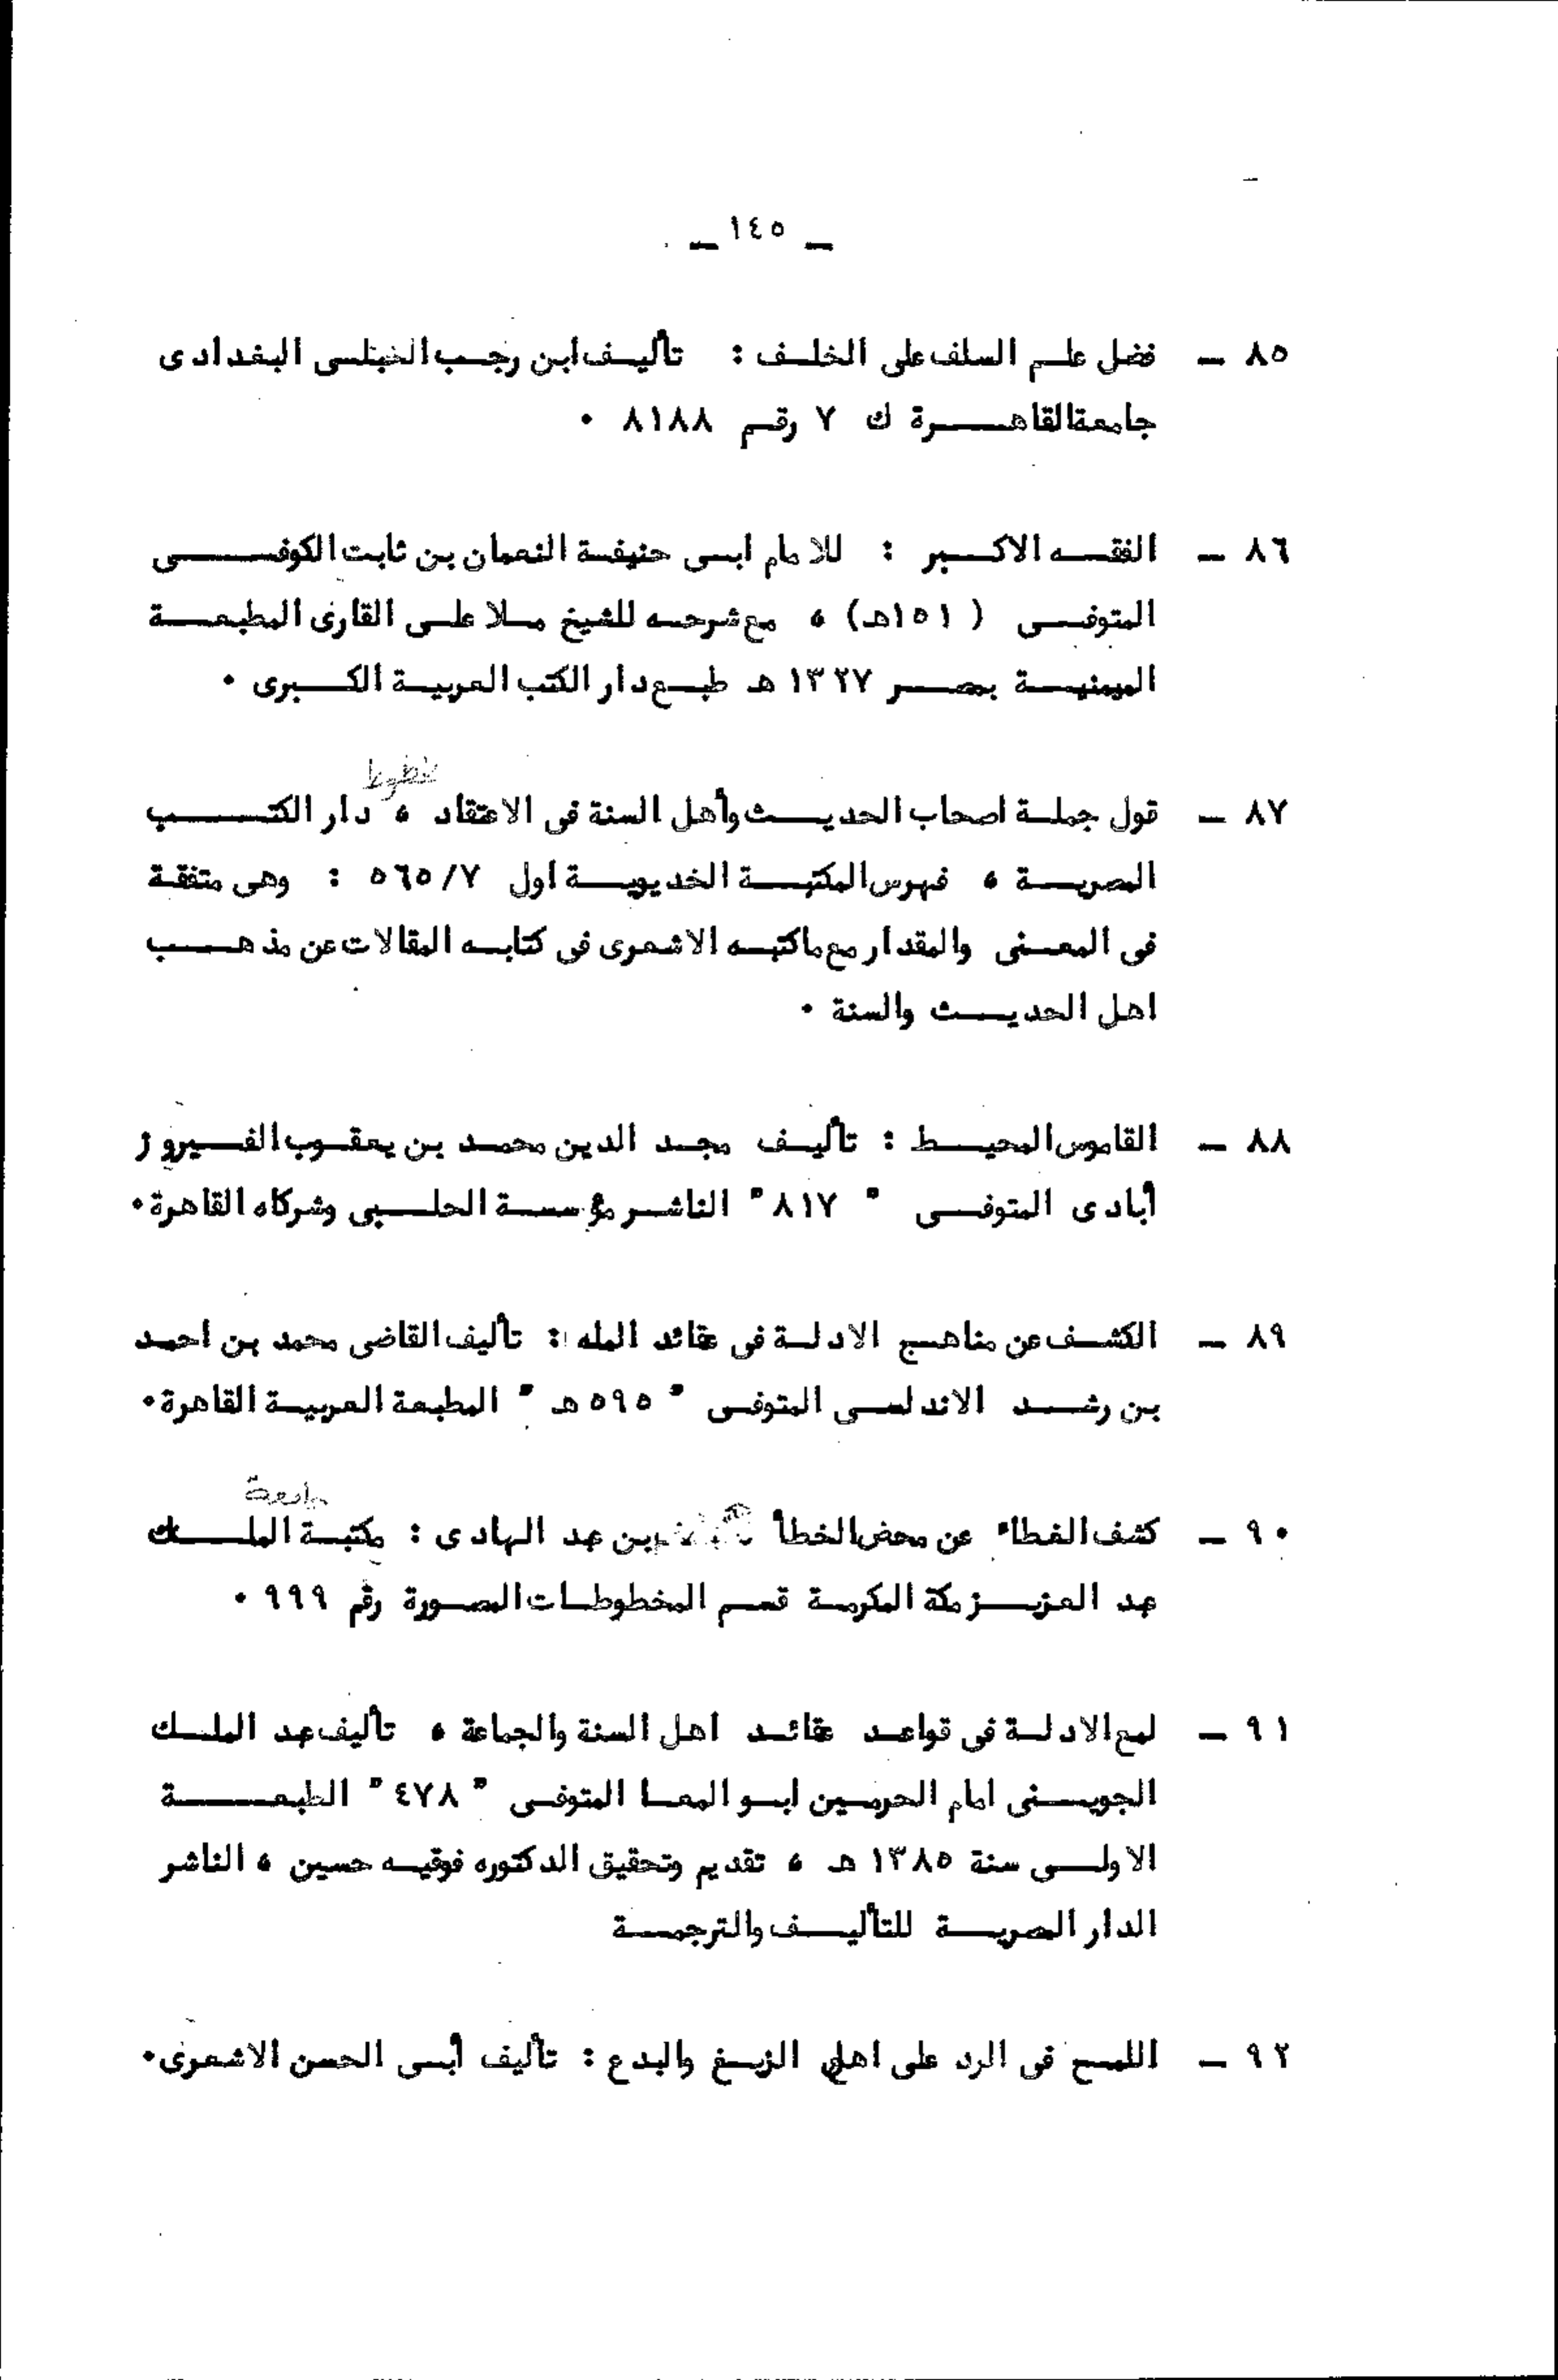 ـ ١٤٥ ـ
٨٥ ـ فضل علم السلف على الخلف : تأليف ابن رجب الحنبلى البغدادى
جامعة القاهرة ك ٧ رقم ٨١٨٨ ٠
٨٦ ـ الفقه الاكبر : للامام ابى حنيفة النعمان بن ثابت الكوفى
المتوفى ( ١٥١هـ) ، مع شرحه للشيخ ملا على القارى المطبعة
الميمنية بمصر ١٣٢٧ هـ طبع دار الكتب العربية الكبرى ٠
مخطوط
٨٧ ـ قول جملة اصحاب الحديث وأهل السنة فى الاعتقاد ، دار الكتب
المصرية ، فهرس المكتبة الخديوية أول ٥٦٥/٧ : وهى متفقة
فى المعنى والمقدار مع ماكتبه الاشعرى فى كتابه المقالات عن مذهب
اهل الحديث والسنة ٠
٨٨ ـ القاموس المحيط : تأليف مجد الدين محمد بن يعقوب الفيروز
أبادى المتوفى " ٨١٧" الناشر مؤسسة الحلبى وشركاه القاهرة٠
٨٩ ـ الكشف عن مناهج الادلة فى عقائد المله : تأليف القاضى محمد بن احمد
بن رشد الاندلسى المتوفى " ٥٩٥ هـ " المطبعة العربية القاهرة٠
جامعة
٩٠ ـ كشف الغطاء عن محض الخطأ بن عبد الهادى : مكتبة الملك
عبد العزيز مكة المكرمة قسم المخطوطات المصورة رقم ٩٩٩ ٠
٩١ ـ لمع الادلة فى قواعد عقائد اهل السنة والجماعة ، تأليف عبد الملك
الجوينى امام الحرمين ابو المعا المتوفى " ٤٧٨" الطبعة
الاولى سنة ١٣٨٥ هـ ، تقديم وتحقيق الدكتوره فوقيه حسين ، الناشر
الدار المصرية للتأليف والترجمة
٩٢ ـ اللمع فى الرد على اهل الزيغ والبدع : تأليف أبى الحسن الاشعرى٠